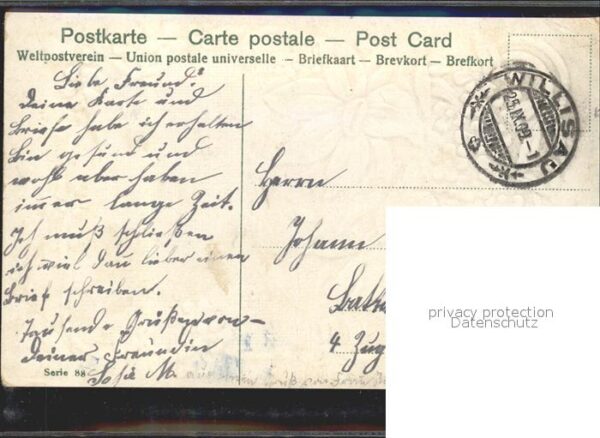 Postkarte — Carte postale — Post Card
Weltpostverein — Union postale universelle — Briefkaart — Brevkort — Brefkort
Liebe Freund!
Deine Karte und
Briefe habe ich erhalten
bin gesund und
wohl aber haben
immer lange Zeit.
Ich muß schließen
ich viel dan lieber einen
Brief schreiben.
Tausend Grüße von
Deiner Freundin
M.
Serie 88
WILLISAU
25.IX.09.-1
Herrn
Johann
4 Zug
privacy protection
Datenschutz